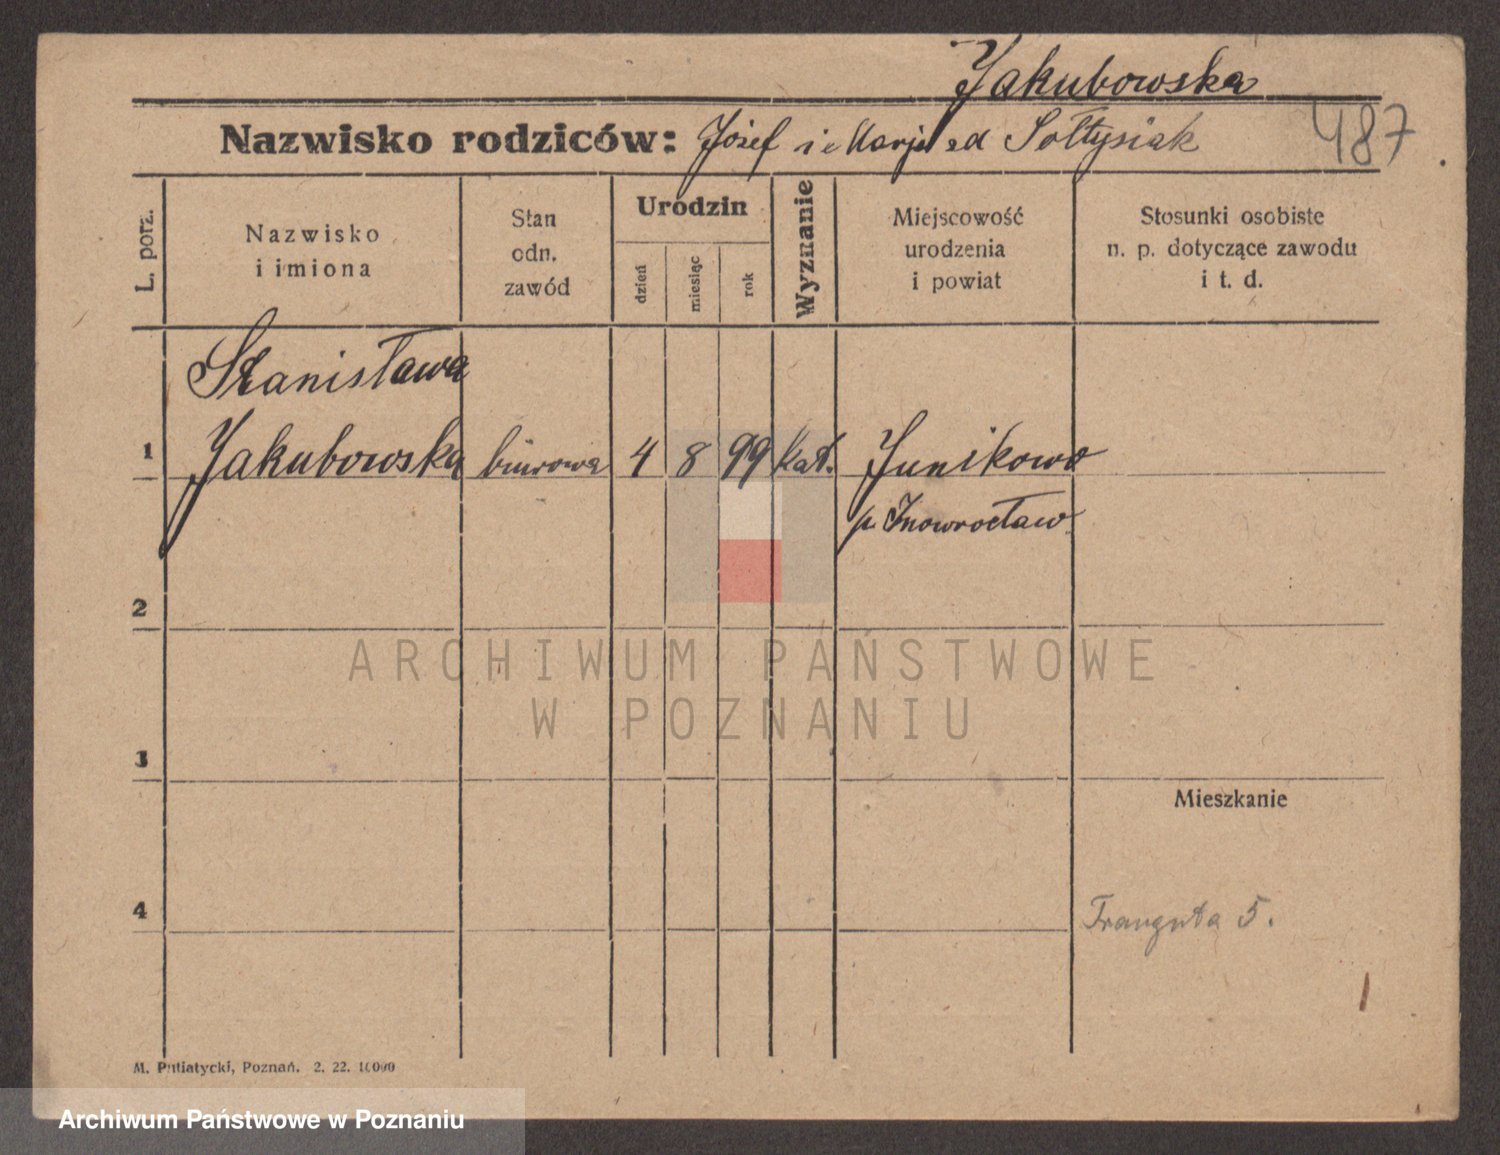 Jakubowska
Nazwisko rodziców: Józef i Marja Sołtysiak
487
L. porz.
Nazwisko
i imiona
Stan
odn.
zawód
Urodzin
dzień
miesiąc
rok
Wyznanie
Miejscowość
urodzenia
i powiat
Stosunki osobiste
n. p. dotyczące zawodu
i t. d.
Stanisława
1 Jakubowska biurowa 4 8 99 kat. Junikowo
p. Inowrocław
2
ARCHIWUM PAŃSTWOWE
W POZNANIU
3
Mieszkanie
4
Traugutta 5.
M. Putiatycki, Poznań. 2. 22. 10000
Archiwum Państwowe w Poznaniu